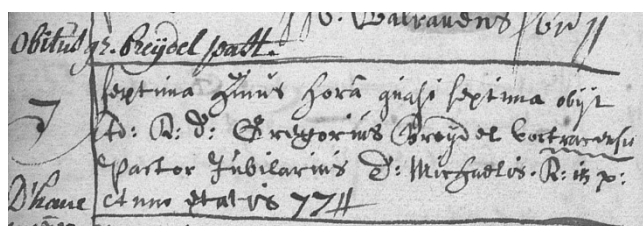 Obitus gr. Breydel past.
7
septima huius hora quasi septima obyt
ad: R: d: Gregorius Breydel Cortracensis
Pastor Jubilarius D: Michaelis. R: p:
etatis 77
D'hane